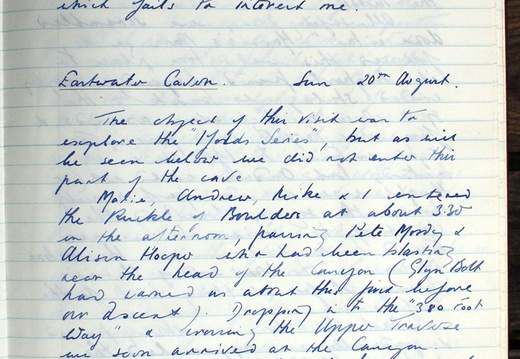 which fails to interest me.
Eastwater Cavern. Sun 20th August.
The object of this visit was to
explore the "Mords Series", but as will
be seen below we did not enter this
part of the cave
Marie, Andrew, Mike & I entered
the Ruckle of Boulders at about 3:30
in the afternoon, passing Pete Moody &
Alison Hooper who had been blasting
near the head of the Canyon (Glyn Bolt
had warned us about this just before
our descent). Dropping into the "380 Foot
Way" & crossing the Upper Traverse
we soon arrived at the Canyon.